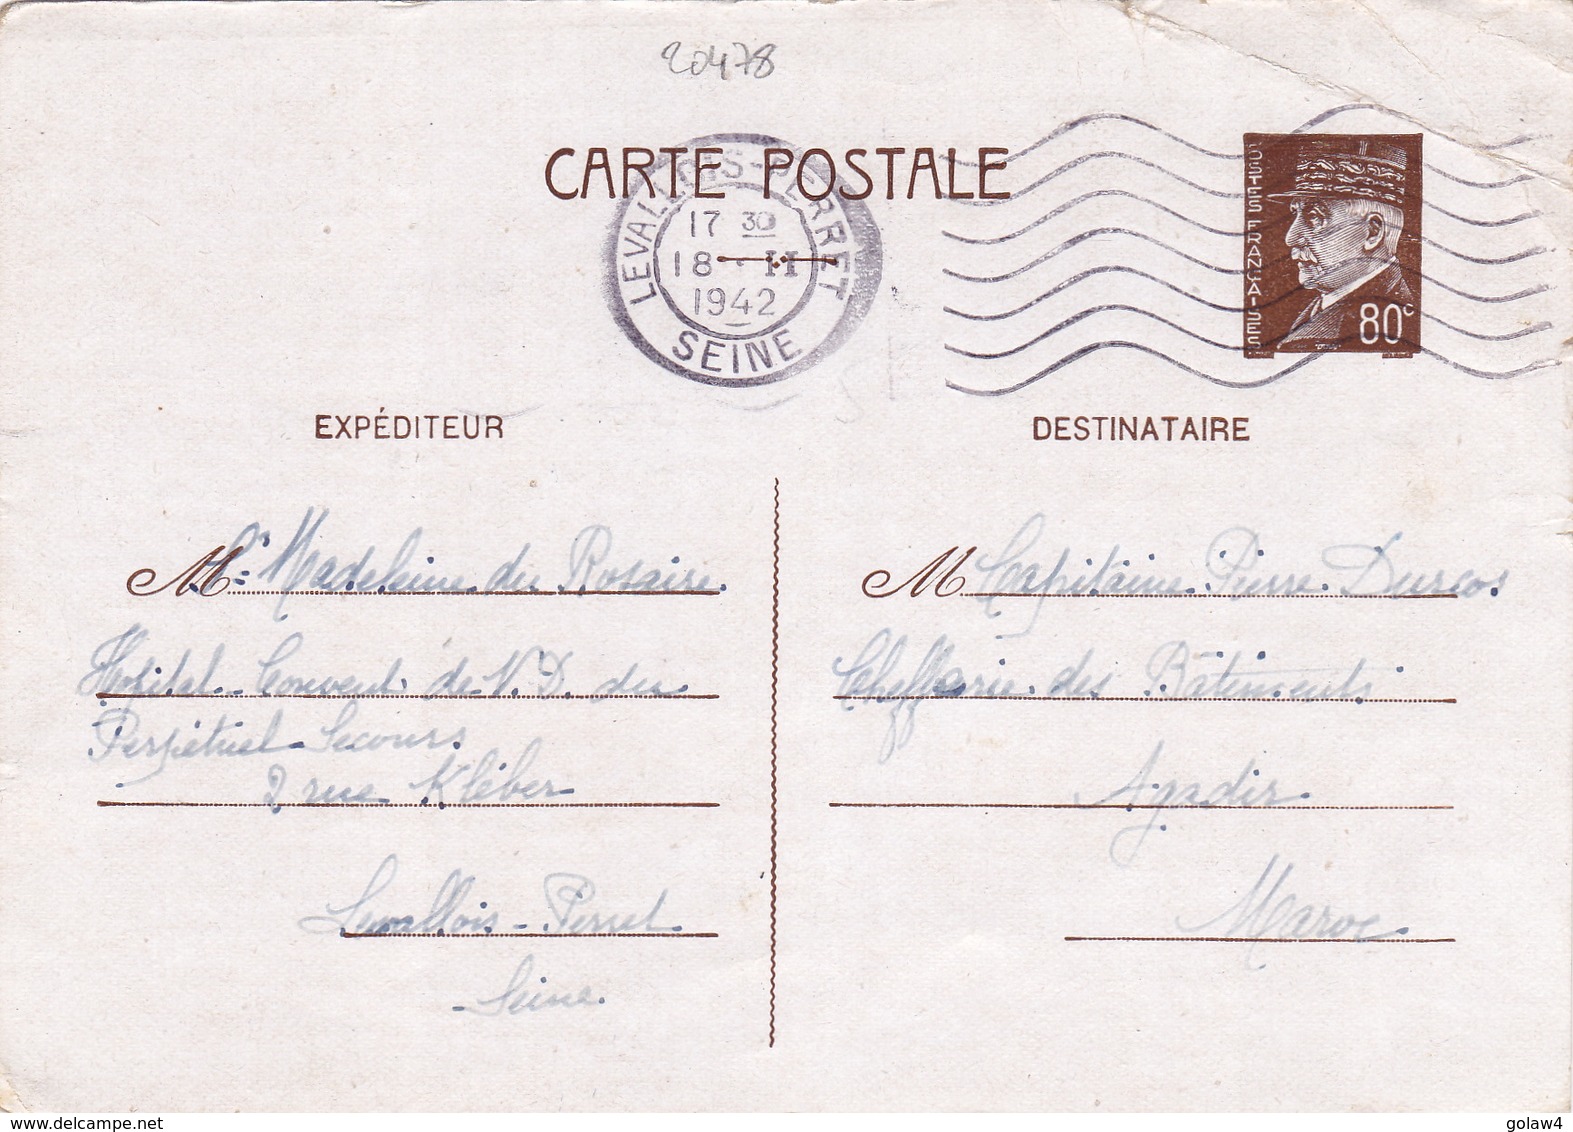 20478
CARTE POSTALE
LEVALLOIS-PERRET
17 30
18 · II
1942
SEINE
POSTES FRANÇAISES
80c
EXPÉDITEUR
DESTINATAIRE
M Madeleine du Rosaire
Hôpital Couvent de N. D. du
Perpétuel Secours
2 rue Kléber
Levallois-Perret
Seine.
M Capitaine Pierre Durcos
Chefferie des Bâtiments
Agadir
Maroc
www.delcampe.net
golaw4